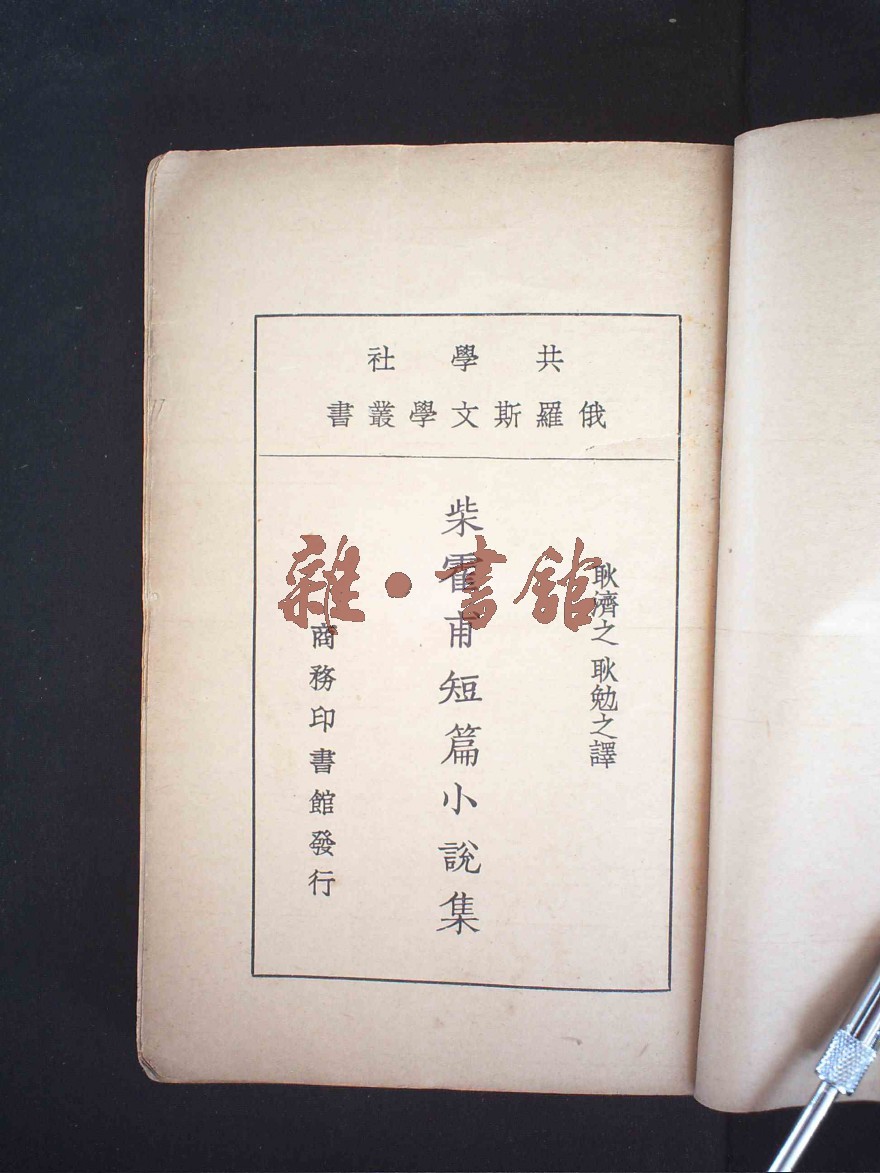 共學社
俄羅斯文學叢書
耿濟之 耿勉之譯
柴霍甫短篇小說集
商務印書館發行
雜·書館